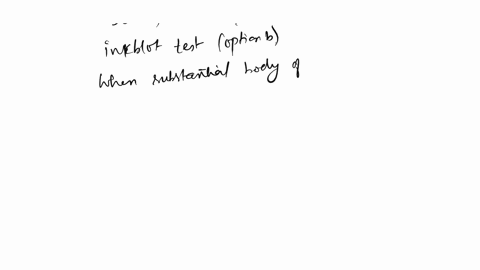 inkblot test (option b)
When substantial body of